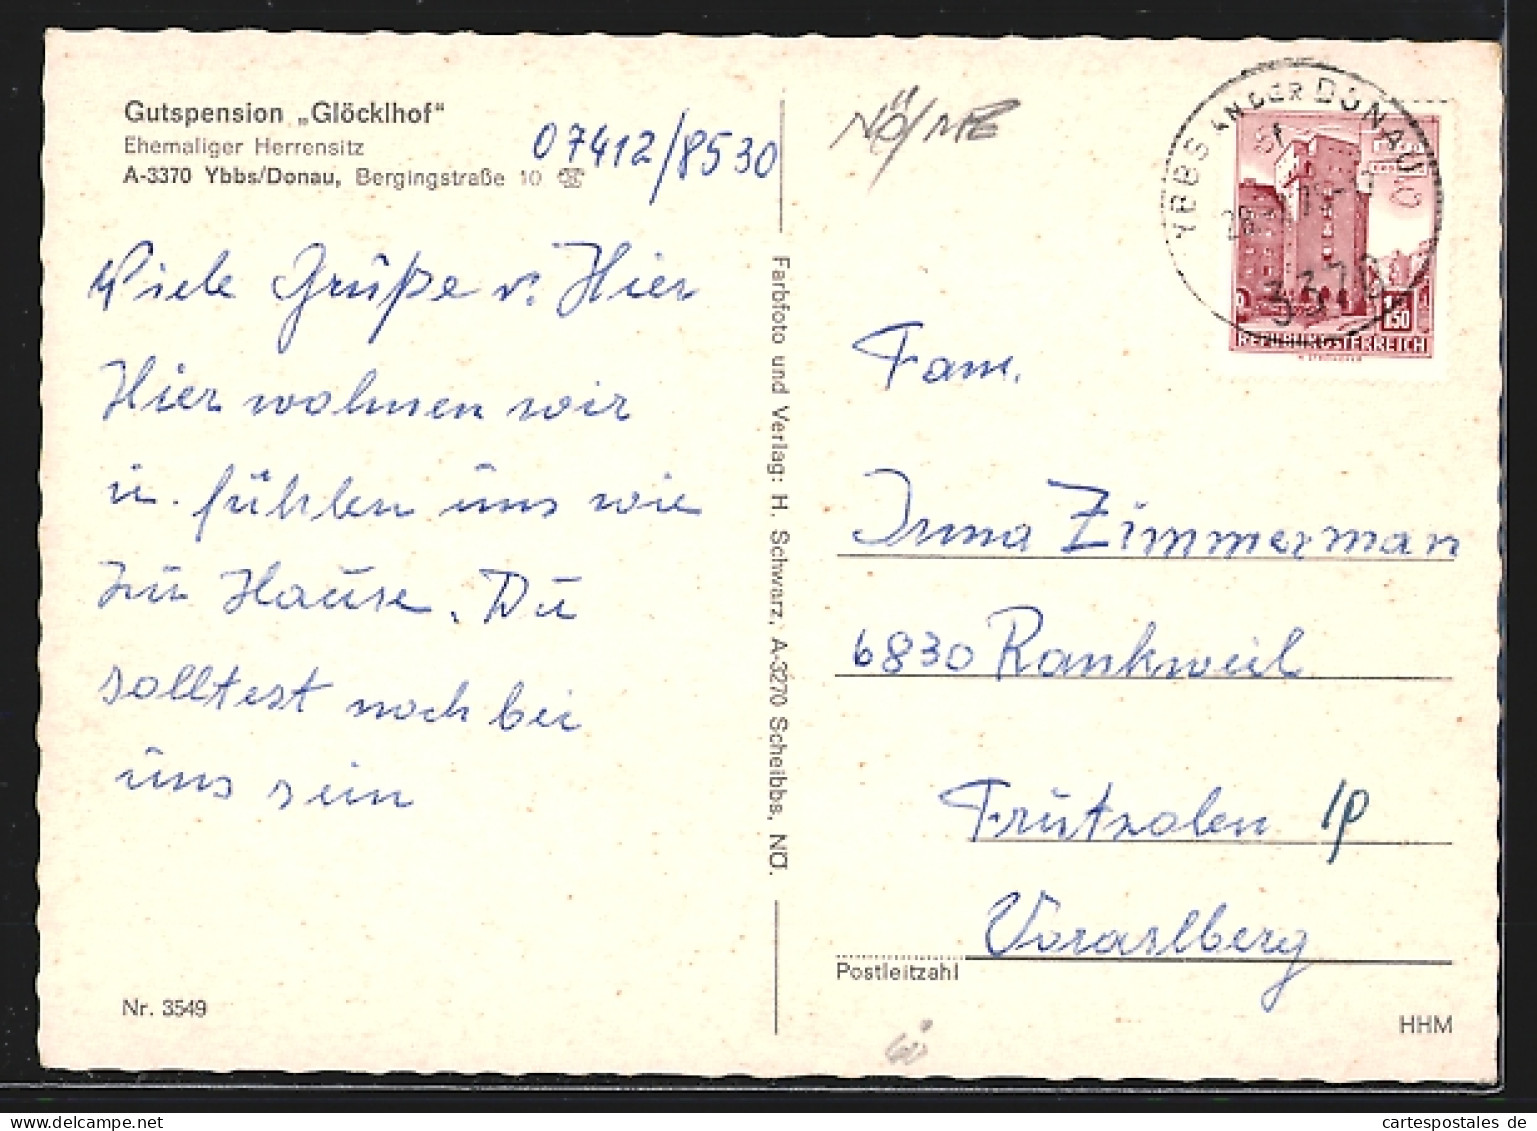 Gutspension „Glöcklhof"
Ehemaliger Herrensitz
A-3370 Ybbs/Donau, Bergingstraße 10 ☏
07412/8530
Viele Grüße v. Hier
Hier wohnen wir
u. fühlen uns wie
zu Hause. Du
solltest noch bei
uns sein
Nr. 3549
Farbfoto und Verlag: H. Schwarz, A-3270 Scheibbs, NÖ.
YBBS AN DER DONAU
3370
1.50
REPUBLIK ÖSTERREICH
Fam.
Irma Zimmerman
6830 Rankweil
Frutzolen 1p
Vorarlberg
Postleitzahl
HHM
cartespostales.de